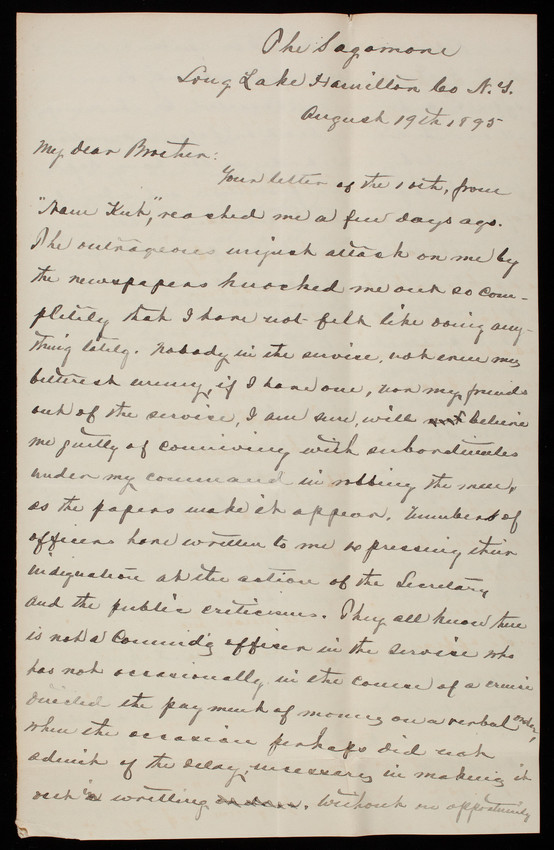 The Sagamore
Long Lake Hamilton Co N.Y.
August 19th 1895
My dear Brother:
Your letter of the 10th, from
"Nam Kuk", reached me a few days ago.
The outrageous unjust attack on me by
the newspapers knocked me out so com-
pletely that I have not felt like doing any-
thing lately. Nobody in the service, not even my
bitterest enemy, if I have one, nor my friends
out of the service, I am sure, will not believe
me guilty of conniving with subordinates
under my command in robbing the men,
as the papers make it appear. Numbers of
officers have written to me expressing their
indignation at the action of the Secretary
and the public criticisms. They all know there
is not a Commndg officer in the service who
has not occasionally in the course of a cruise
directed the payment of money on a verbal order,
when the occasion perhaps did not
admit of the delay, necessary in making it
out in writing. Without an opportunity